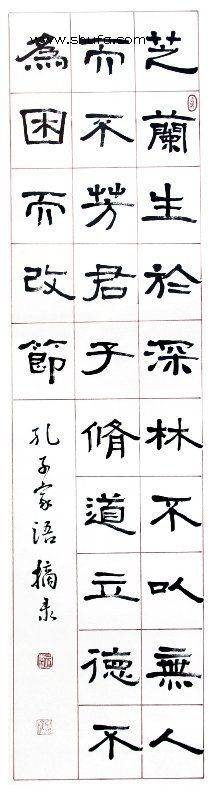 www.shufa.com
芝蘭生於深林不以無人
而不芳君子脩道立德不
為困而改節
孔子家語摘录